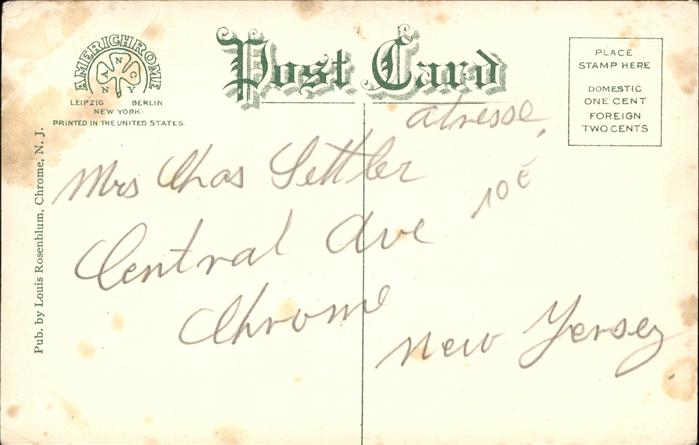 AMERICHROME
A N C N Y
LEIPZIG BERLIN
NEW YORK
PRINTED IN THE UNITED STATES.
Post Card
PLACE
STAMP HERE
DOMESTIC
ONE CENT
FOREIGN
TWO CENTS
Pub. by Louis Rosenblum, Chrome, N. J.
adresse
Mrs Chas Settler
10¢
Central Ave
Chrome
New Jersey